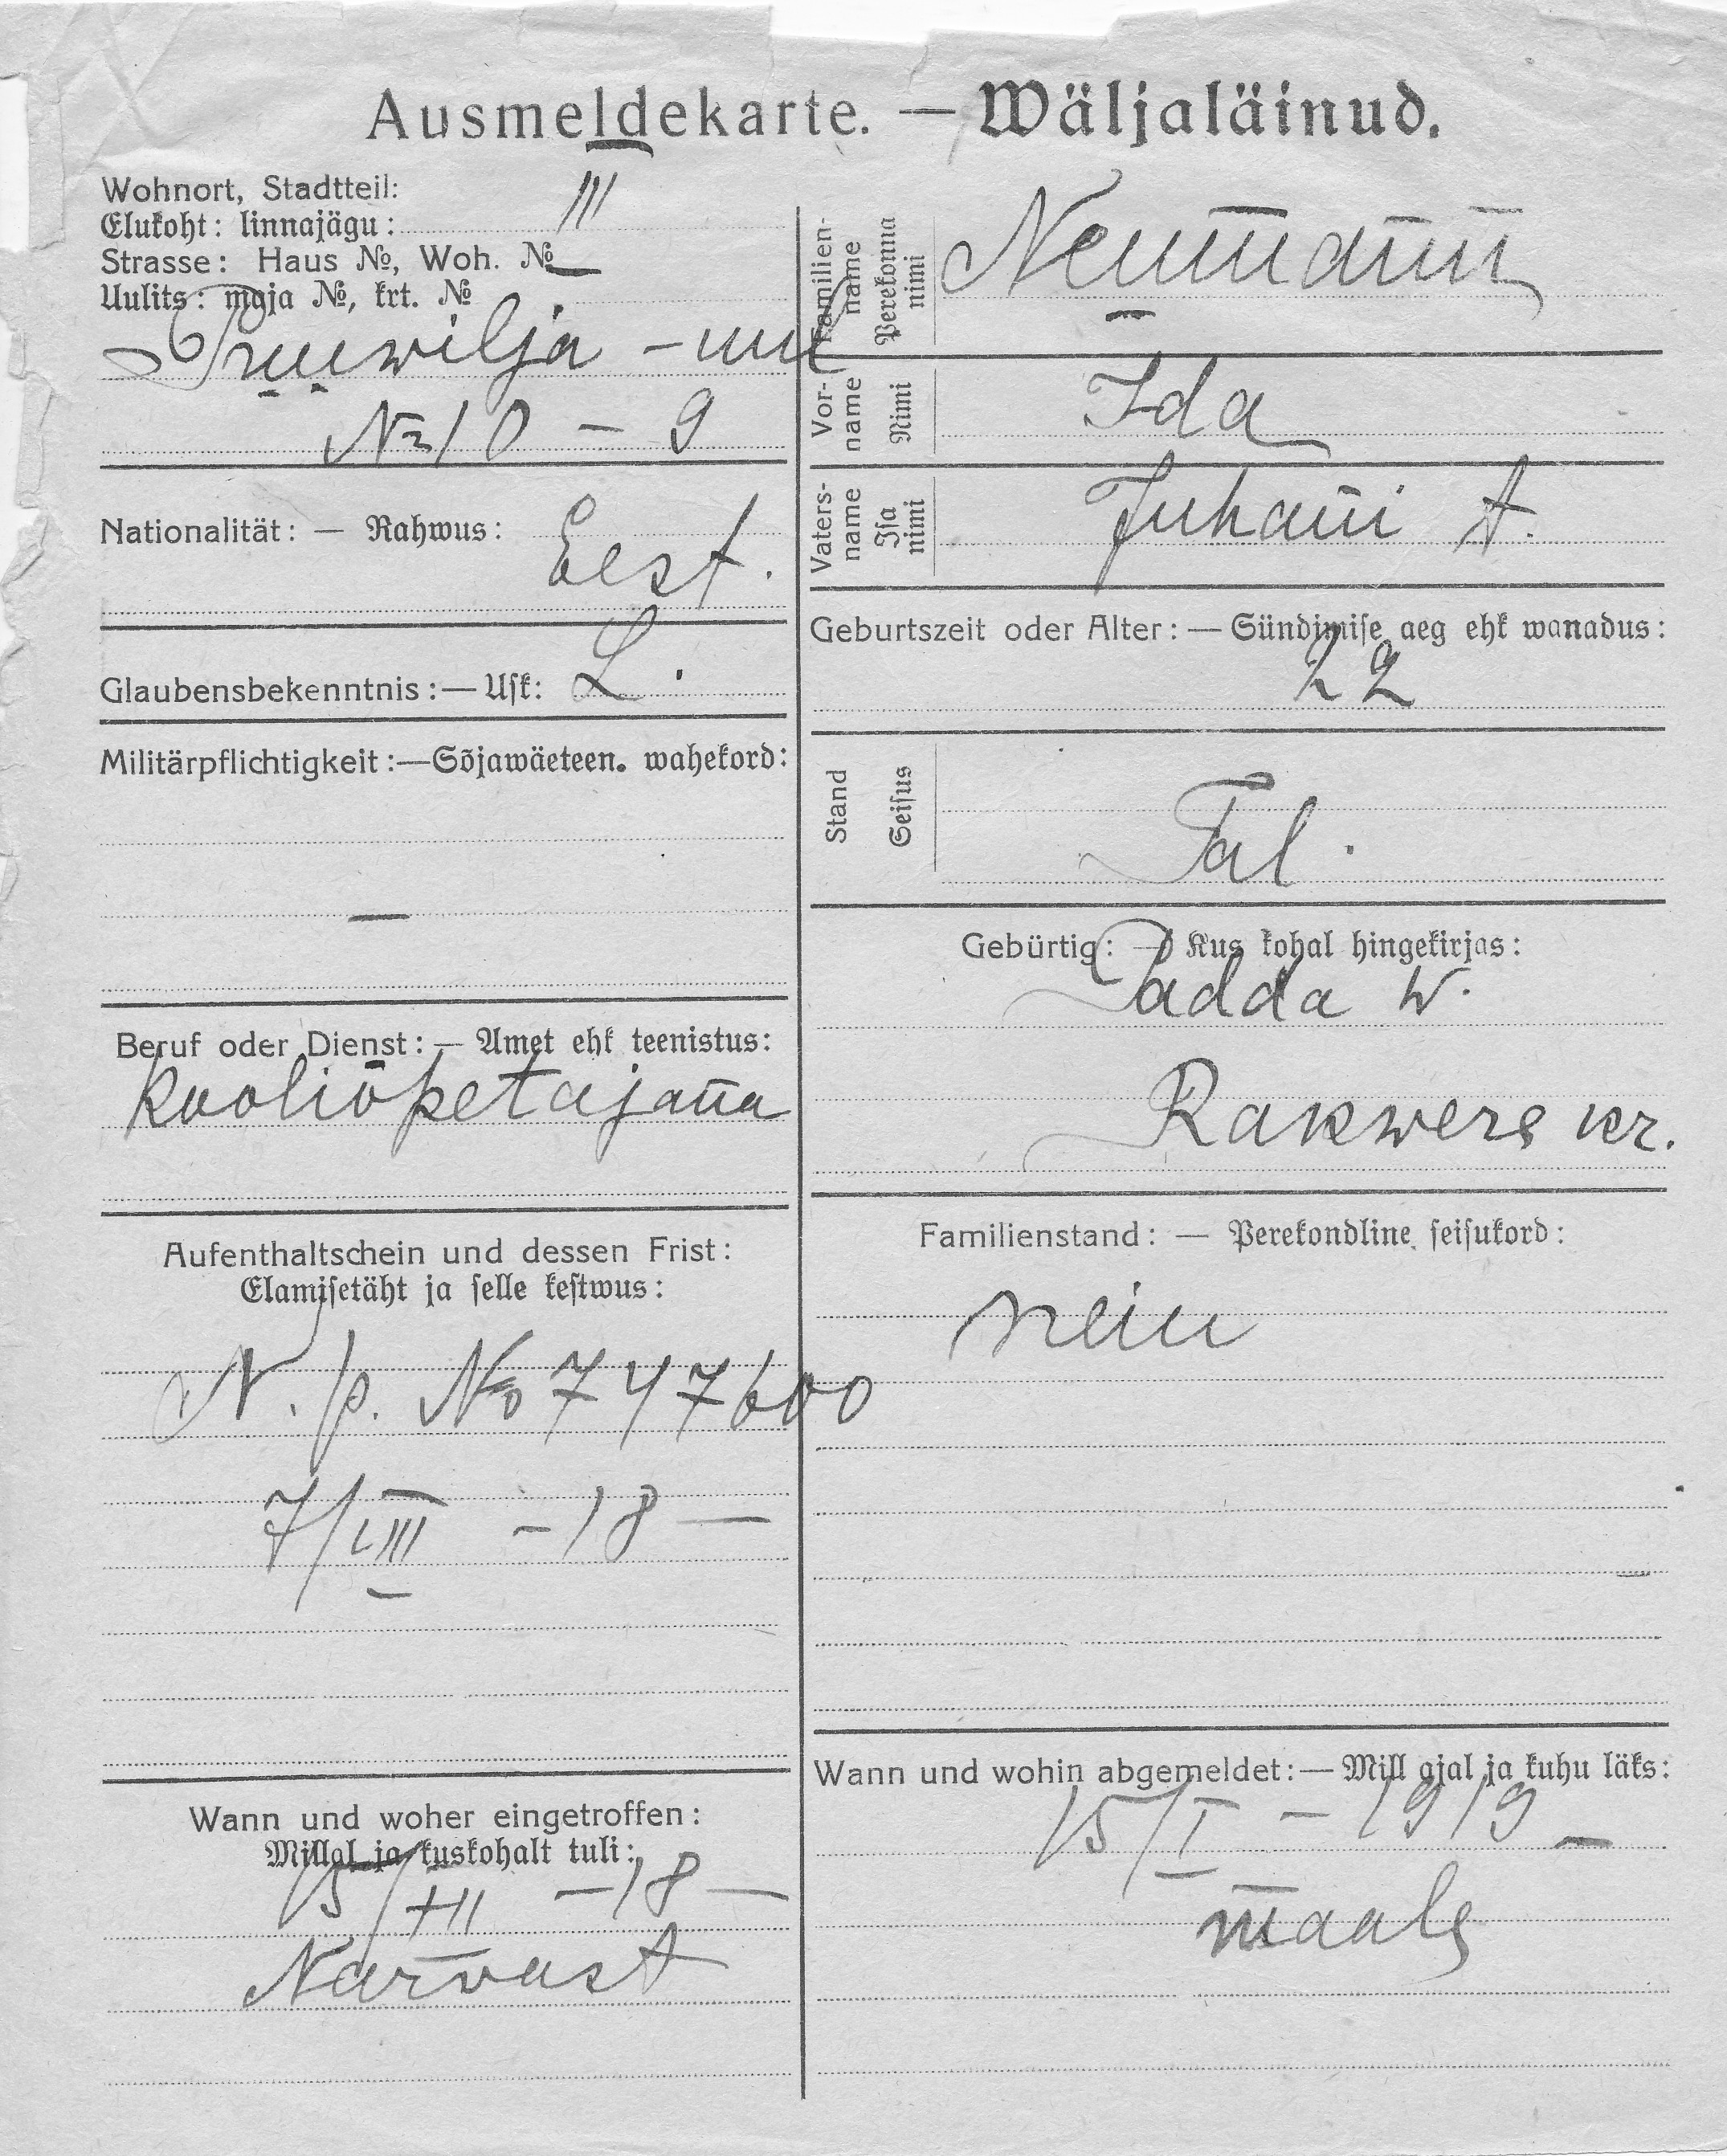 Ausmeldekarte. — Wäljaläinud.
Wohnort, Stadtteil:
Elukoht: linnajägu: III
Strasse: Haus №, Woh. №
Uulits: maja №, krt. №
Puuwilja - uul
№ 10 - 9
Nationalität: — Rahwus:
Eest.
Glaubensbekenntnis: — Usk: L.
Militärpflichtigkeit: — Sõjawäeteen. wahekord:
—
Beruf oder Dienst: — Amet ehk teenistus:
kooliõpetajana
Aufenthaltschein und dessen Frist:
Elamisetäht ja selle kestwus:
N. p. № 747600
7/VIII - 18 —
Wann und woher eingetroffen:
Millal ja kuskohalt tuli:
15/XII - 18 —
Narvast
Familien-name Perekonna nimi Neumann
Vor-name Nimi Ida
Vaters-name Isa nimi Juhani t.
Geburtszeit oder Alter: — Sündimise aeg ehk wanadus:
22
Stand Seisus Tal.
Gebürtig: — Kus kohal hingekirjas:
Padda W.
Rakwere kr.
Familienstand: — Perekondline seisukord:
neiu
Wann und wohin abgemeldet: — Mill ajal ja kuhu läks:
15/I - 1919 —
maale